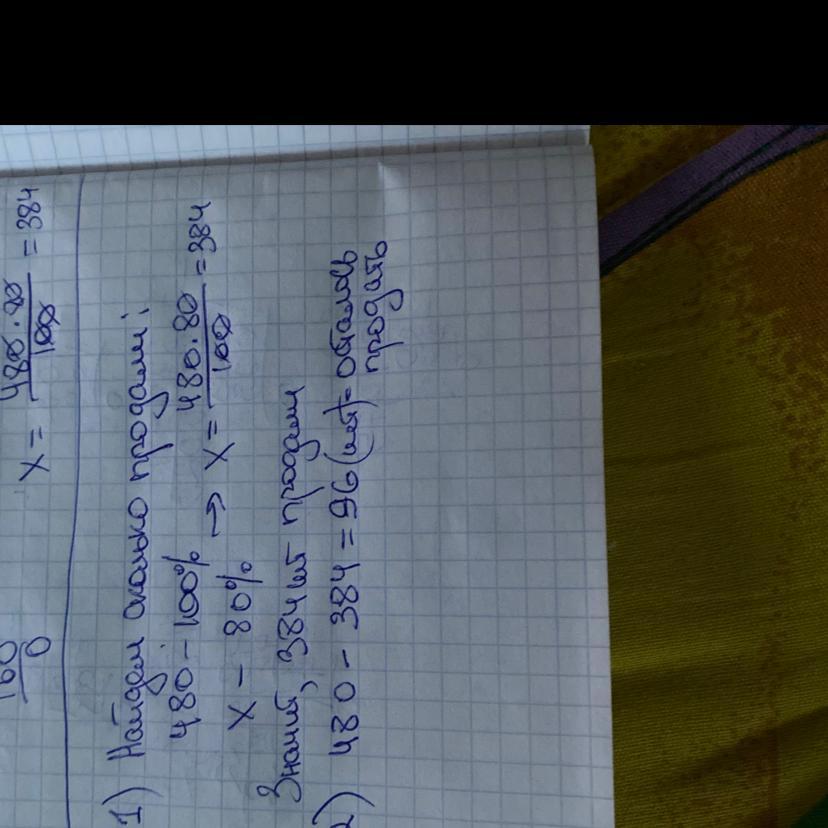 160
0
X = 480·80/100 = 384
1) Найдем сколько продали;
480 – 100% → X = 480·80/100 = 384
X – 80%
Значит, 384 шт продали
2) 480 – 384 = 96 (шт) = осталось
продать